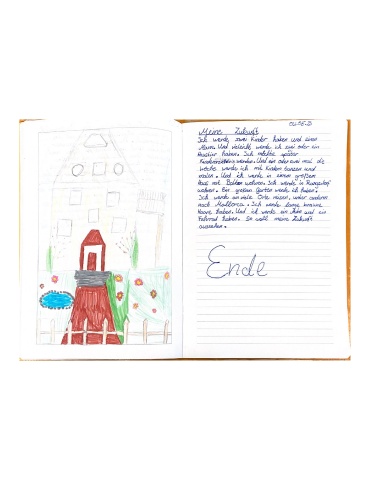 Meine Zukunft
Ich werde zwei Kinder haben und einen
Mann. Und vieleicht werde ich zwei oder ein
Haustier haben. Ich möchte später
werden. Und ein oder zwei mal die
Woche werde ich mit Kindern tanzen und
malen. Und ich werde in einem großem
Haus mit Balkon wohnen. Ich werde in
wohnen. Ein großen Garten werde ich haben.
Ich werde an viele Orte reisen, unter anderem
nach Mallorca. Ich werde lange braune
Haare haben. Und ich werde ein Auto und ein
Fahrrad haben. So soll meine Zukunft
aussehen.
Ende